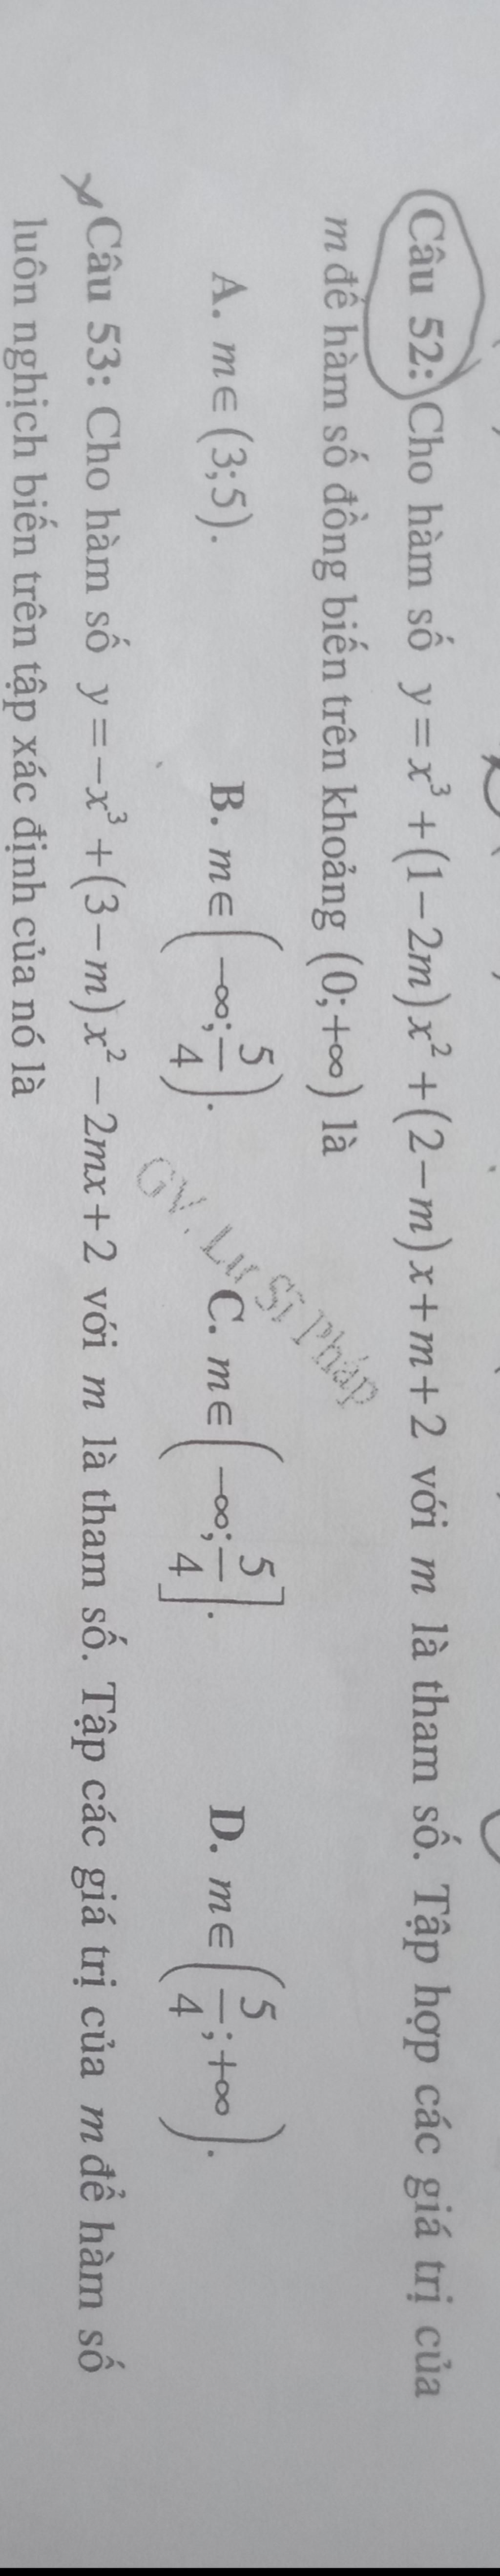 Câu 52: Cho hàm số y = x³ + (1 − 2m)x² + (2 − m)x + m + 2 với m là tham số. Tập hợp các giá trị của
m để hàm số đồng biến trên khoảng (0; +∞) là
A. m ∈ (3; 5). B. m ∈ (−∞; 5/4). C. m ∈ (−∞; 5/4]. D. m ∈ (5/4; +∞).
GV. Lư Sĩ Pháp
Câu 53: Cho hàm số y = −x³ + (3 − m)x² − 2mx + 2 với m là tham số. Tập các giá trị của m để hàm số
luôn nghịch biến trên tập xác định của nó là